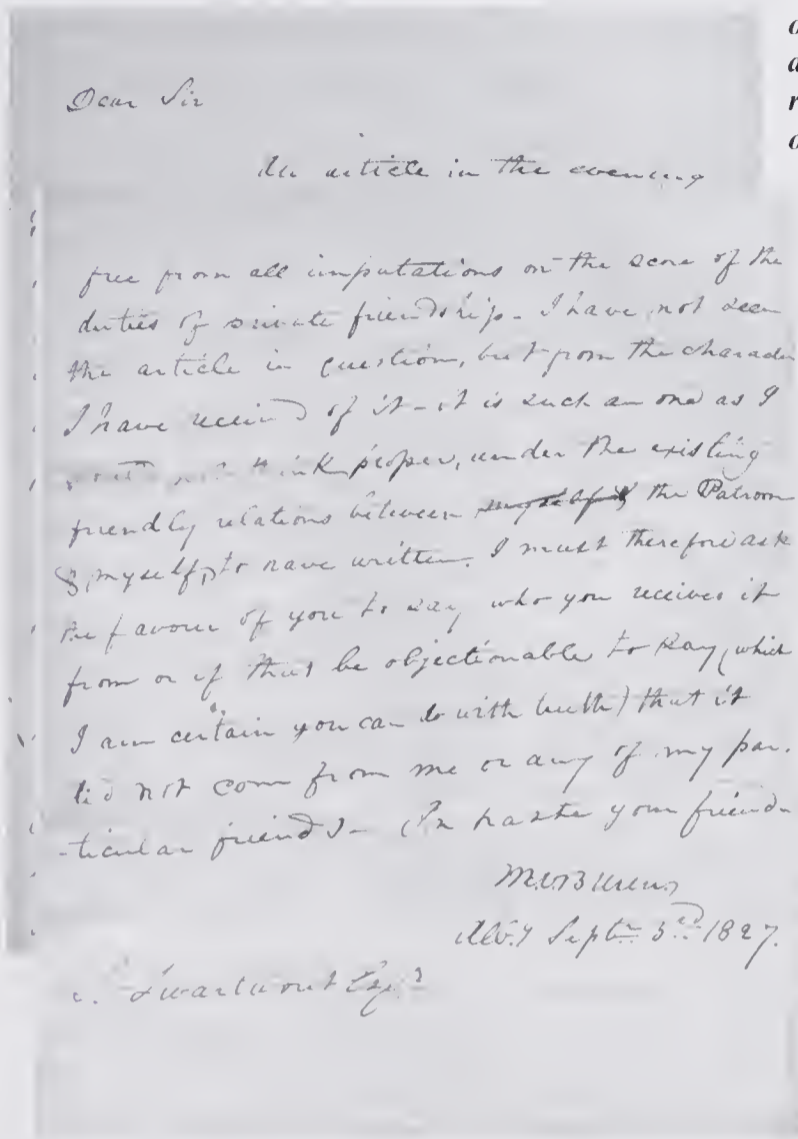 Dear Sir
An article in the evening
free from all imputations on the score of the
duties of private friendship - I have not seen
the article in question, but from the character
I have received of it - it is such an one as I
think proper, under the existing
friendly relations between myself & the Patroon
& myself, to have written. I must therefore ask
the favour of you to say who you received it
from or if that be objectionable to say (which
I am certain you can do with truth) that it
did not come from me or any of my par-
-ticular friends - In haste your friend
M V Buren
Alby Septr 3rd 1827.
Swartwout Esqr